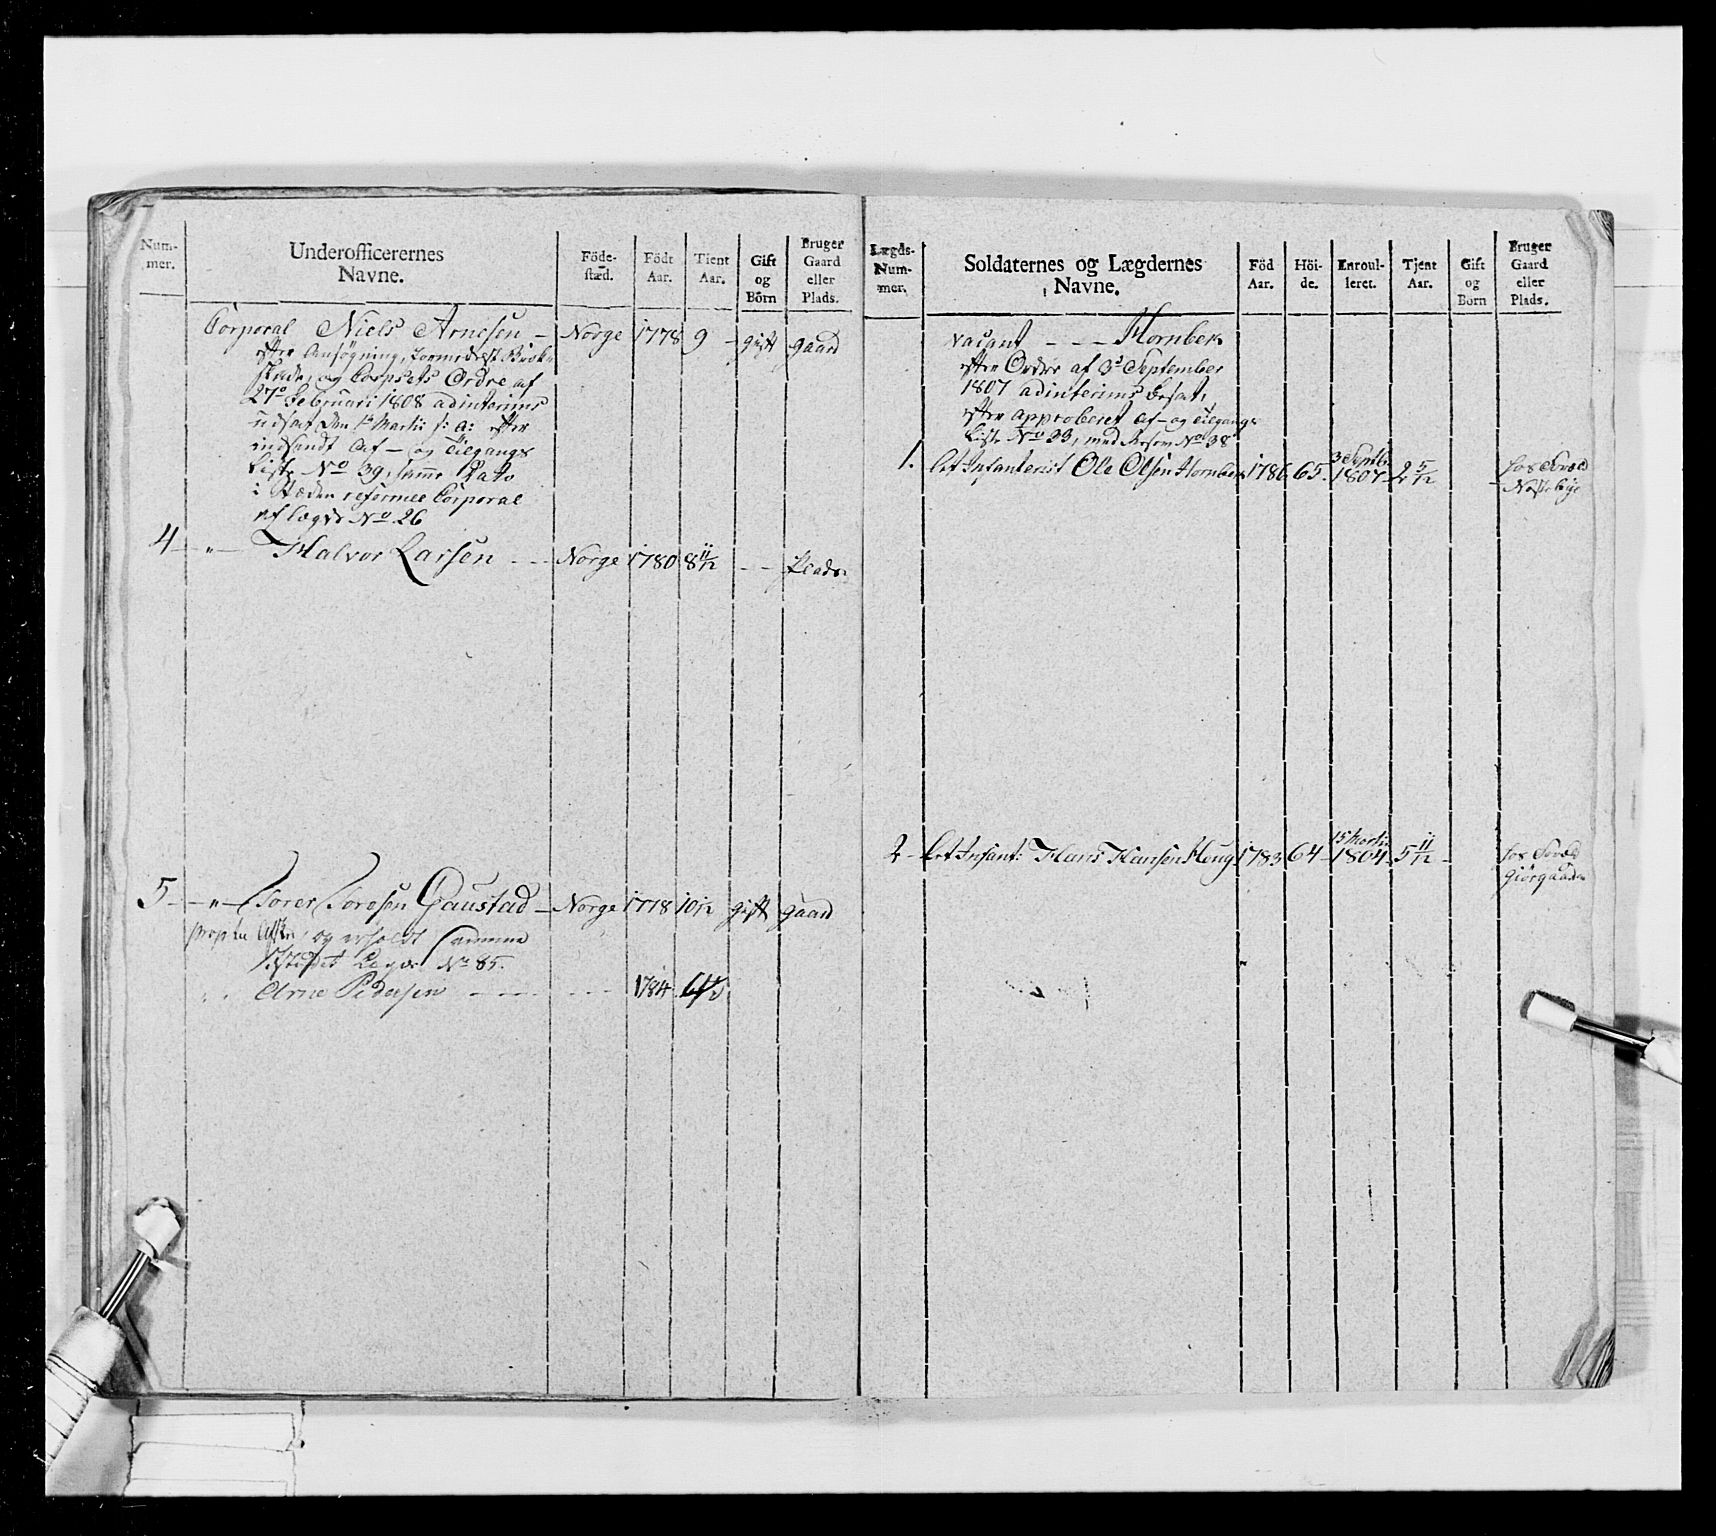 Num-
mer.
Underofficerernes
Navne.
Föde-
stæd.
Födt
Aar.
Tient
Aar.
Gift
og
Börn
Bruger
Gaard
eller
Plads.
Corporal Niels Arnesen - Norge 1778 9 - gift gaard
efter Ansøgning,
og Corpsets Ordre af
27de Februari 1808 adinterims
udsat den 1te Martii s: a: efter
indsendt Af- og Tilgangs
Liste No 39, samme Dato
i Stæden reformee Corporal
af Lægd No 26
4 - " - Halvor Larsen - - - Norge 1780 8 11/12 - - Plads
5 - " - Sören Gaustad - Norge 1778 10 1/2 gift gaard
og erholdt samme
No 85.
" " Arne Pedersen - - - - - - 1784
Lægds-
Num-
mer.
Soldaternes og Lægdernes
Navne.
Föd
Aar.
Höi-
de.
Enroul-
leret.
Tjent
Aar.
Gift
og
Börn
Bruger
Gaard
eller
Plads.
vacant - - - Hornbek
efter Ordre af 3d September
1807 adinterims besat,
efter approberet Af- og Tilgangs
Liste No 23, med No 38
1. Let Infanterist Ole Olsen Hornbek 1786 65 3 Septbr 1807 2 5/12
2 - Let Infant: Hans Hansen Heug 1783 64 15 Martii 1804 5 11/12 -